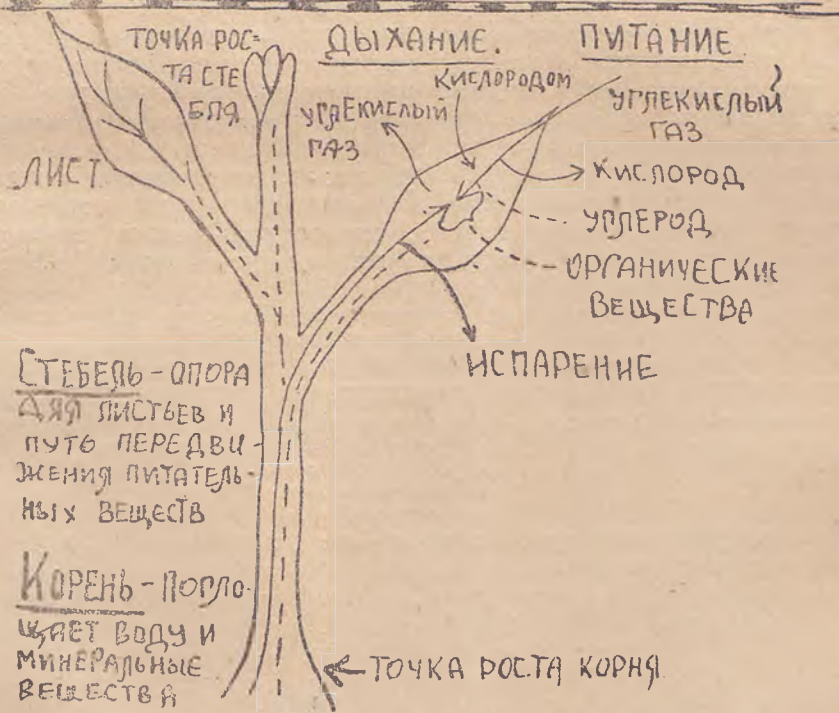 ТОЧКА РОС-
ТА СТЕ
БЛЯ
ДЫХАНИЕ.
ПИТАНИЕ
КИСЛОРОДОМ
УГЛЕКИСЛЫЙ
ГАЗ
УГЛЕКИСЛЫЙ
ГАЗ
ЛИСТ
КИСЛОРОД
УГЛЕРОД
ОРГАНИЧЕСКИЕ
ВЕЩЕСТВА
ИСПАРЕНИЕ
СТЕБЕЛЬ - ОПОРА
ДЛЯ ЛИСТЬЕВ И
ПУТЬ ПЕРЕДВИ-
ЖЕНИЯ ПИТАТЕЛЬ-
НЫХ ВЕЩЕСТВ
КОРЕНЬ - ПОГЛО-
ЩАЕТ ВОДУ И
МИНЕРАЛЬНЫЕ
ВЕЩЕСТВА
ТОЧКА РОСТА КОРНЯ